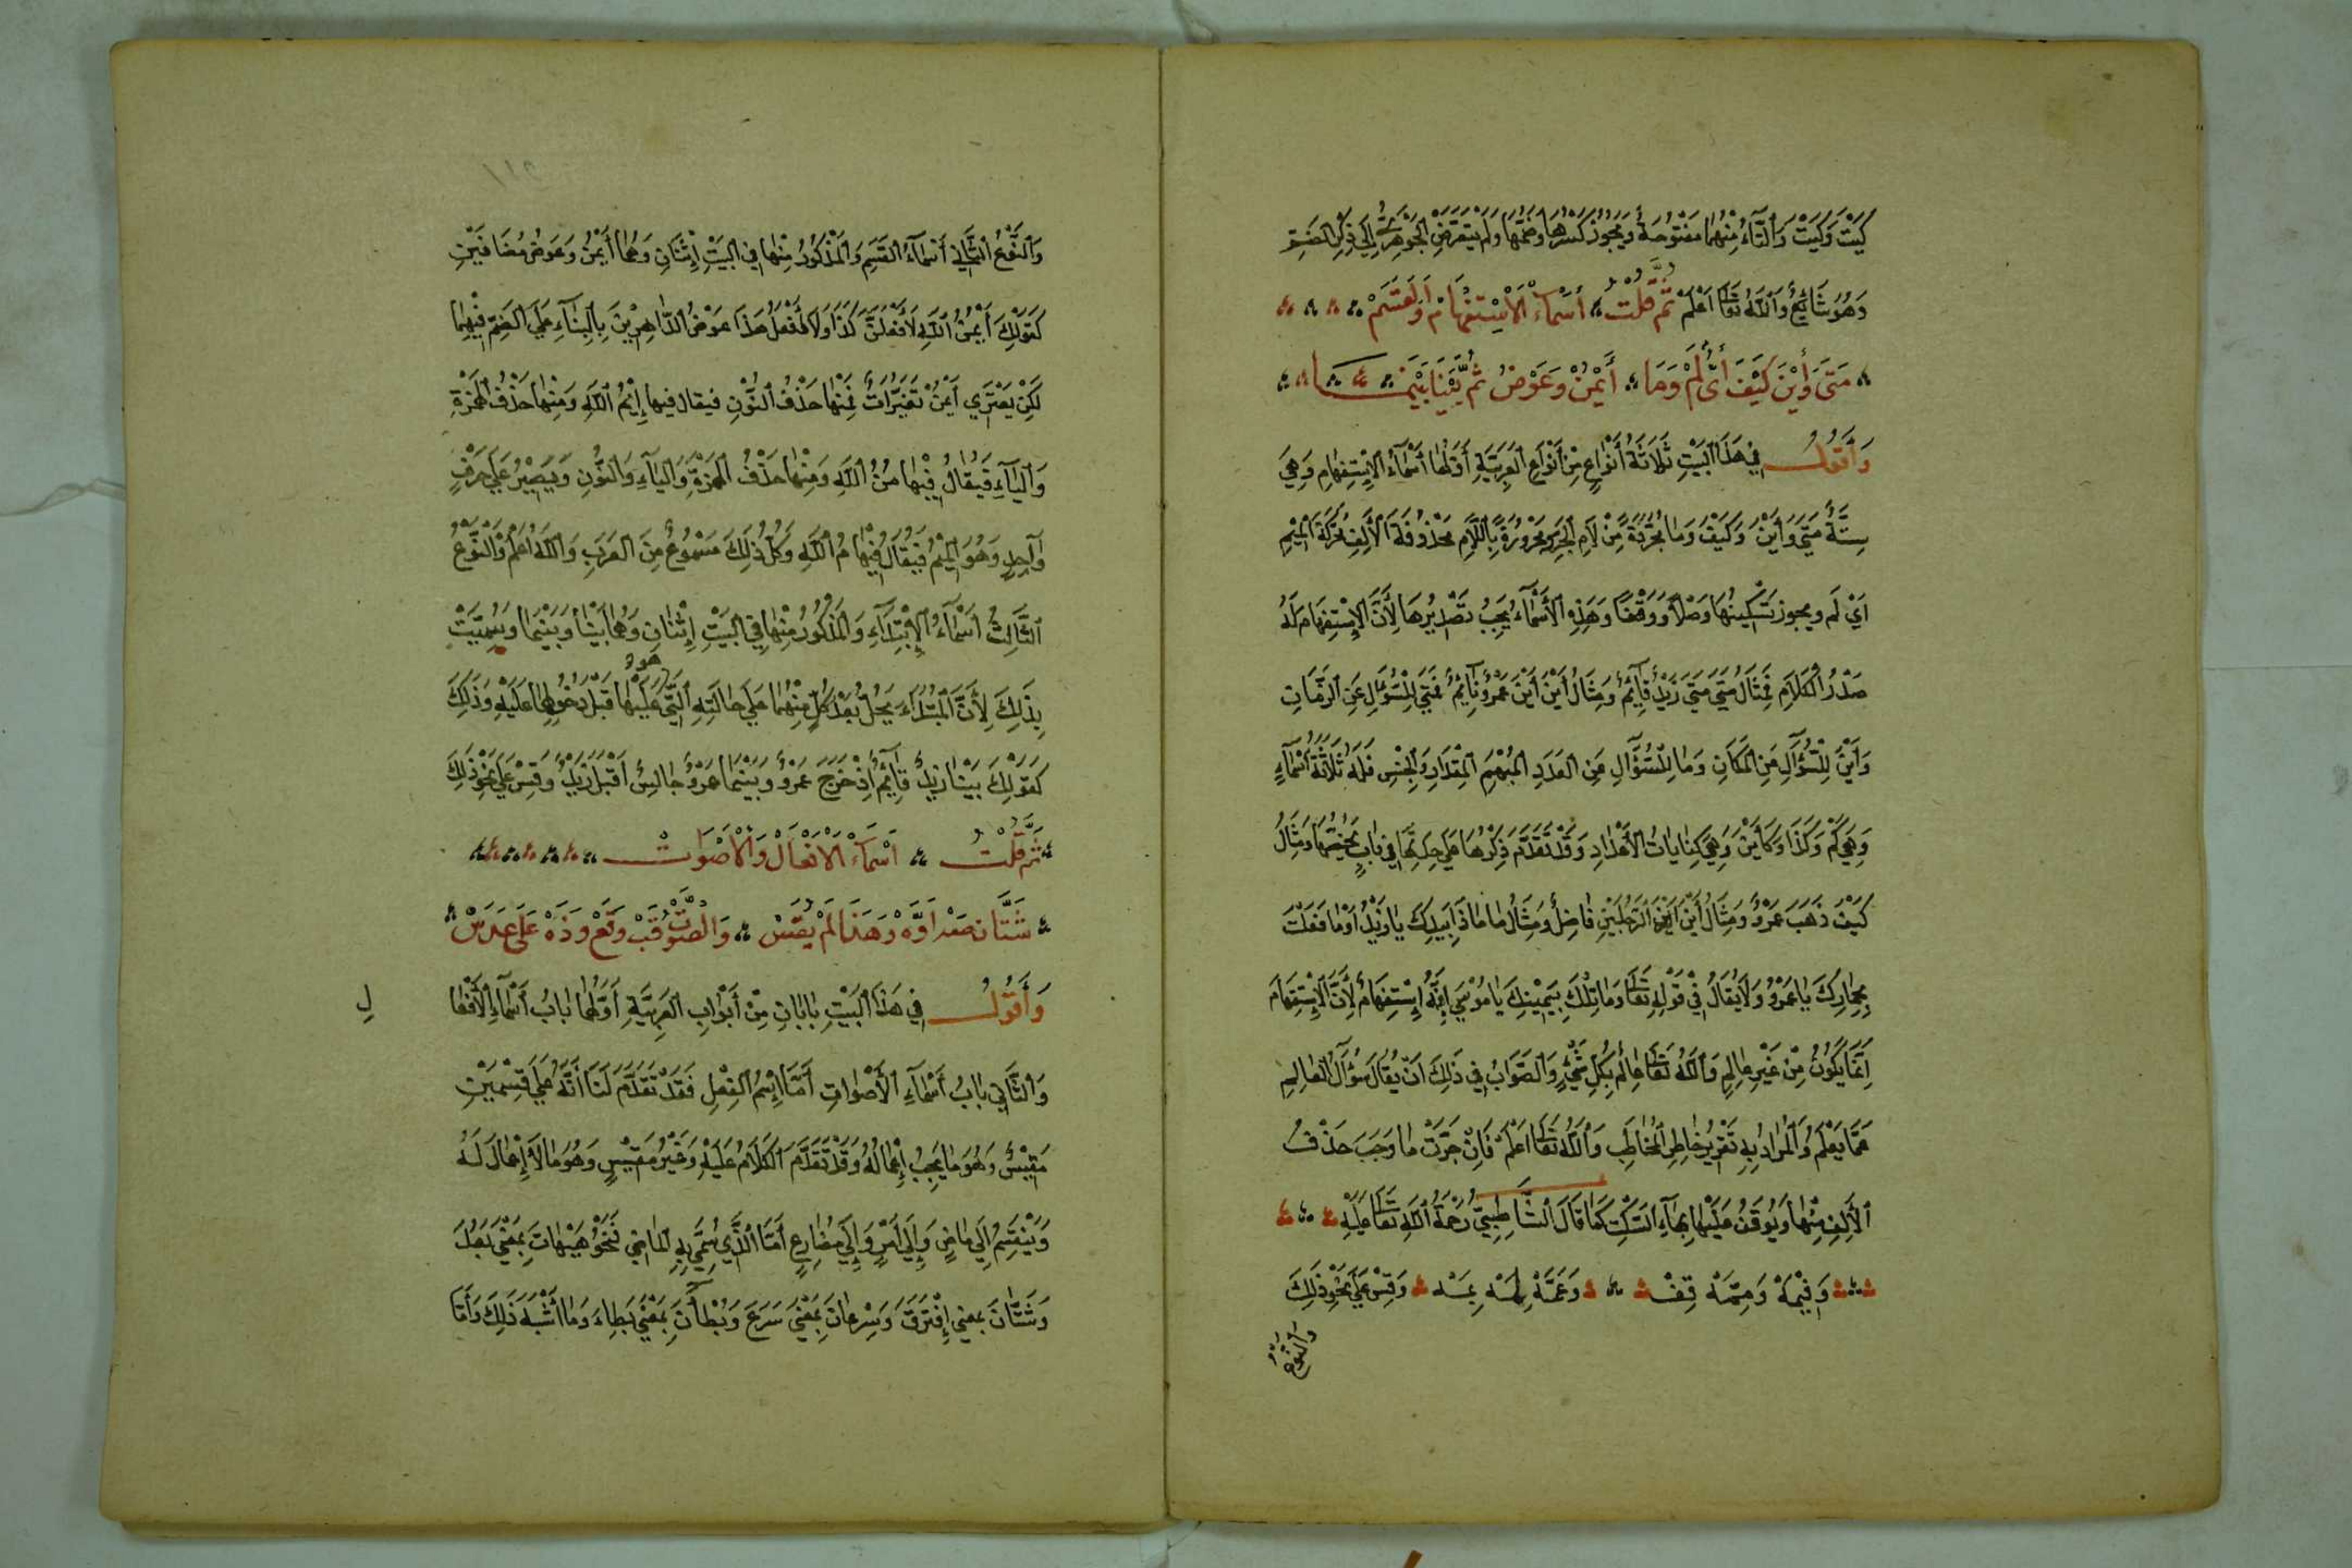 كَيْتَ وَكَيْتَ وَالتَّاءُ مِنْهُمَا مَفْتُوحَةٌ وَيَجُوزُ كَسْرُهَا وَضَمُّهَا وَلَمْ يَتَعَرَّضِ الْجَوْهَرِيُّ إِلَى ذِكْرِ الضَّمِّ
وَهُوَ شَائِعٌ وَاللَّهُ تَعَالَى أَعْلَمُ ثُمَّ قُلْتُ أَسْمَاءُ الْاِسْتِفْهَامْ وَالْقَسَمْ
مَتَى وَأَيْنَ كَيْفَ أَيُّ لَمْ وَمَا أَيْمُنْ وَعَوْضُ ثُمَّ بَيْنَا بَيْنَمَا
وَأَقُولُ فِي هَذَا الْبَيْتِ ثَلَاثَةُ أَنْوَاعٍ مِنْ أَنْوَاعِ الْعَرَبِيَّةِ أَوَّلُهَا أَسْمَاءُ الْاِسْتِفْهَامِ وَهِيَ
سِتَّةٌ مَتَى وَأَيْنَ وَكَيْفَ وَمَا مُجَرَّدَةً مِنْ لَامِ الْجَرِّ وَمَجْرُورَةً بِاللَّامِ مَحْذُوفَةَ الْأَلِفِ مُحَرَّكَةَ الْمِيمِ
أَيْ لِمَ ويجوز تَسْكِينُهَا وَصْلًا وَوَقْفًا وَهَذِهِ الْأَسْمَاءُ يَجِبُ تَصْدِيرُهَا لِأَنَّ الْاِسْتِفْهَامَ لَهُ
صَدْرُ الْكَلَامِ فَمِثَالُ مَتَى مَتَى زَيْدٌ قَائِمٌ وَمِثَالُ أَيْنَ أَيْنَ عَمْرٌو نَائِمٌ فَمَتَى لِلسُّؤَالِ عَنِ الزَّمَانِ
وَأَيْنَ لِلسُّؤَالِ عَنِ الْمَكَانِ وَمَا لِلسُّؤَالِ عَنِ الْعَدَدِ الْمُبْهَمِ الْمِقْدَارِ وَالْجِنْسِ فَلَهُ ثَلَاثَةُ أَسْمَاءٍ
وَهِيَ كَمْ وَكَذَا وَكَأَيِّنْ وَهِيَ كِنَايَاتُ الْأَعْدَادِ وَقَدْ تَقَدَّمَ ذِكْرُهَا عَلَى حِدَتِهَا فِي بَابٍ يَخُصُّهَا وَمِثَالُ
كَيْفَ ذَهَبَ عَمْرٌو وَمِثَالُ أَيْنَ الرَّجُلَيْنِ فَاضِلٌ وَمِثَالُ مَا مَاذَا بِيَدِكَ يَا زَيْدُ أَوْ مَا فَعَلْتَ
بِحِمَارِكَ يَا عَمْرُو وَلَا يُقَالُ فِي قَوْلِهِ تَعَالَى وَمَا تِلْكَ بِيَمِينِكَ يَا مُوسَى إِنَّهُ اِسْتِفْهَامٌ لِأَنَّ الْاِسْتِفْهَامَ
إِنَّمَا يَكُونُ مِنْ غَيْرِ عَالِمٍ وَاللَّهُ تَعَالَى عَالِمٌ بِكُلِّ شَيْءٍ وَالصَّوَابُ فِي ذَلِكَ أَنْ يُقَالَ سُؤَالُ الْعَالِمِ
عَمَّا يَعْلَمُ وَالْمُرَادُ بِهِ تَقْرِيرُ خَاطِرِ الْمُخَاطَبِ وَاللَّهُ تَعَالَى أَعْلَمُ فَإِنْ جُرَّتْ مَا وَجَبَ حَذْفُ
الْأَلِفِ مِنْهَا وَيُوقَفُ عَلَيْهَا بِهَاءِ السَّكْتِ كَمَا قَالَ الشَّاطِبِيُّ رَحْمَةُ اللَّهِ تَعَالَى عَلَيْهِ
وَفِيمَهْ وَمِمَّهْ قِفْ وَعَمَّهْ لِمَهْ بِمَهْ وَقِسْ عَلَى نَحْوِ ذَلِكَ
وَالنَّوْعُ
وَالنَّوْعُ الثَّانِي أَسْمَاءُ الْقَسَمِ وَالْمَذْكُورُ مِنْهَا فِي الْبَيْتِ إِثْنَانِ وَهُمَا أَيْمُنُ وَعَوْضُ مُضَافَيْنِ
كَقَوْلِكَ أَيْمُنُ اللَّهِ لَأَفْعَلَنَّ كَذَا وَلَا أَفْعَلُ هَذَا عَوْضُ الدَّاهِرِينَ بِالْبِنَاءِ عَلَى الضَّمِّ فِيهِمَا
لَكِنْ يَعْتَرِي أَيْمُنُ تَغَيُّرَاتٌ فَمِنْهَا حَذْفُ النُّونِ فيقال فيها إِيْمُ اللَّهِ وَمِنْهَا حَذْفُ الْهَمْزَةِ
وَالْيَاءِ فَيُقَالُ فِيهَا مُنُ اللَّهِ وَمِنْهَا حَذْفُ الْهَمْزَةِ وَالْيَاءِ وَالنُّونِ وَيَصِيرُ عَلَى حَرْفٍ
وَاحِدٍ وَهُوَ الْمِيمُ فَيُقَالُ فِيهَا مُ اللَّهِ وَكُلُّ ذَلِكَ مَسْمُوعٌ مِنَ الْعَرَبِ وَاللَّهُ أَعْلَمُ وَالنَّوْعُ
الثَّالِثُ أَسْمَاءُ الْاِبْتِدَاءِ وَالْمَذْكُورُ مِنْهَا فِي الْبَيْتِ إِثْنَانِ وَهُمَا بَيْنَا وَبَيْنَمَا وَسُمِّيَتْ
بِذَلِكَ لِأَنَّ الْمُبْتَدَاءَ يَحُلُّ بَعْدَ كُلٍّ مِنْهُمَا عَلَى حَالَتِهِ الَّتِي هو عَلَيْهَا قَبْلَ دُخُولِهَا عَلَيْهِ وَذَلِكَ
كَقَوْلِكَ بَيْنَا زَيْدٌ قَائِمٌ إِذْ خَرَجَ عَمْرٌو وَبَيْنَمَا عَمْرٌو جَالِسٌ أَقْبَلَ زَيْدٌ وَقِسْ عَلَى نَحْوِ ذَلِكَ
ثُمَّ قُلْتُ أَسْمَاءُ الْأَفْعَالْ وَالْأَصْوَاتْ
شَتَّانَ صَهْ أَوَّهْ وَهَذَا لَمْ يُقَسْ وَالصَّوْتُ قَبْ وَقَعْ وَذَهْ عَلَى عَدَسْ
وَأَقُولُ فِي هَذَا الْبَيْتِ بَابَانِ مِنْ أَبْوَابِ الْعَرَبِيَّةِ أَوَّلُهُمَا بَابُ أَسْمَاءِ الْأَفْعَا لِ
وَالثَّانِي بَابُ أَسْمَاءِ الْأَصْوَاتِ أَمَّا إِسْمُ الْفِعْلِ فَقَدْ تَقَدَّمَ لَنَا أَنَّهُ عَلَى قِسْمَيْنِ
مَقِيسٌ وَهُوَ مَا يَجِبُ إِعْمَالُهُ وَقَدْ تَقَدَّمَ الْكَلَامُ عَلَيْهِ وَغَيْرُ مَقِيسٍ وَهُوَ مَا لَا إِعْمَالَ لَهُ
وَيَنْقَسِمُ إِلَى مَاضٍ وَإِلَى أَمْرٍ وَإِلَى مُضَارِعٍ أَمَّا الَّذِي سُمِّيَ بِهِ الْمَاضِي نَحْوُ هَيْهَاتَ بِمَعْنَى بَعُدَ
وَشَتَّانَ بمعنى إِفْتَرَقَ وَسِرْعَانَ بِمَعْنَى سَرُعَ وَبُطْآنَ بِمَعْنَى بَطِاءَ وَمَا أَشْبَهَ ذَلِكَ وَأَمَّا